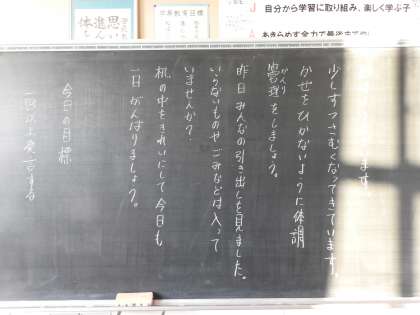 自分から学習に取り組み、楽しく学ぶ子
ます。
少しずつさむくなってきています。
かぜをひかないように体調
管理をしましょう。
かんり
昨日みんなの引き出しを見ました。
いらないものやごみなどは入って
いませんか？
机の中をきれいにして今日も
一日がんばりましょう。
今日の目標
一回以上発言する